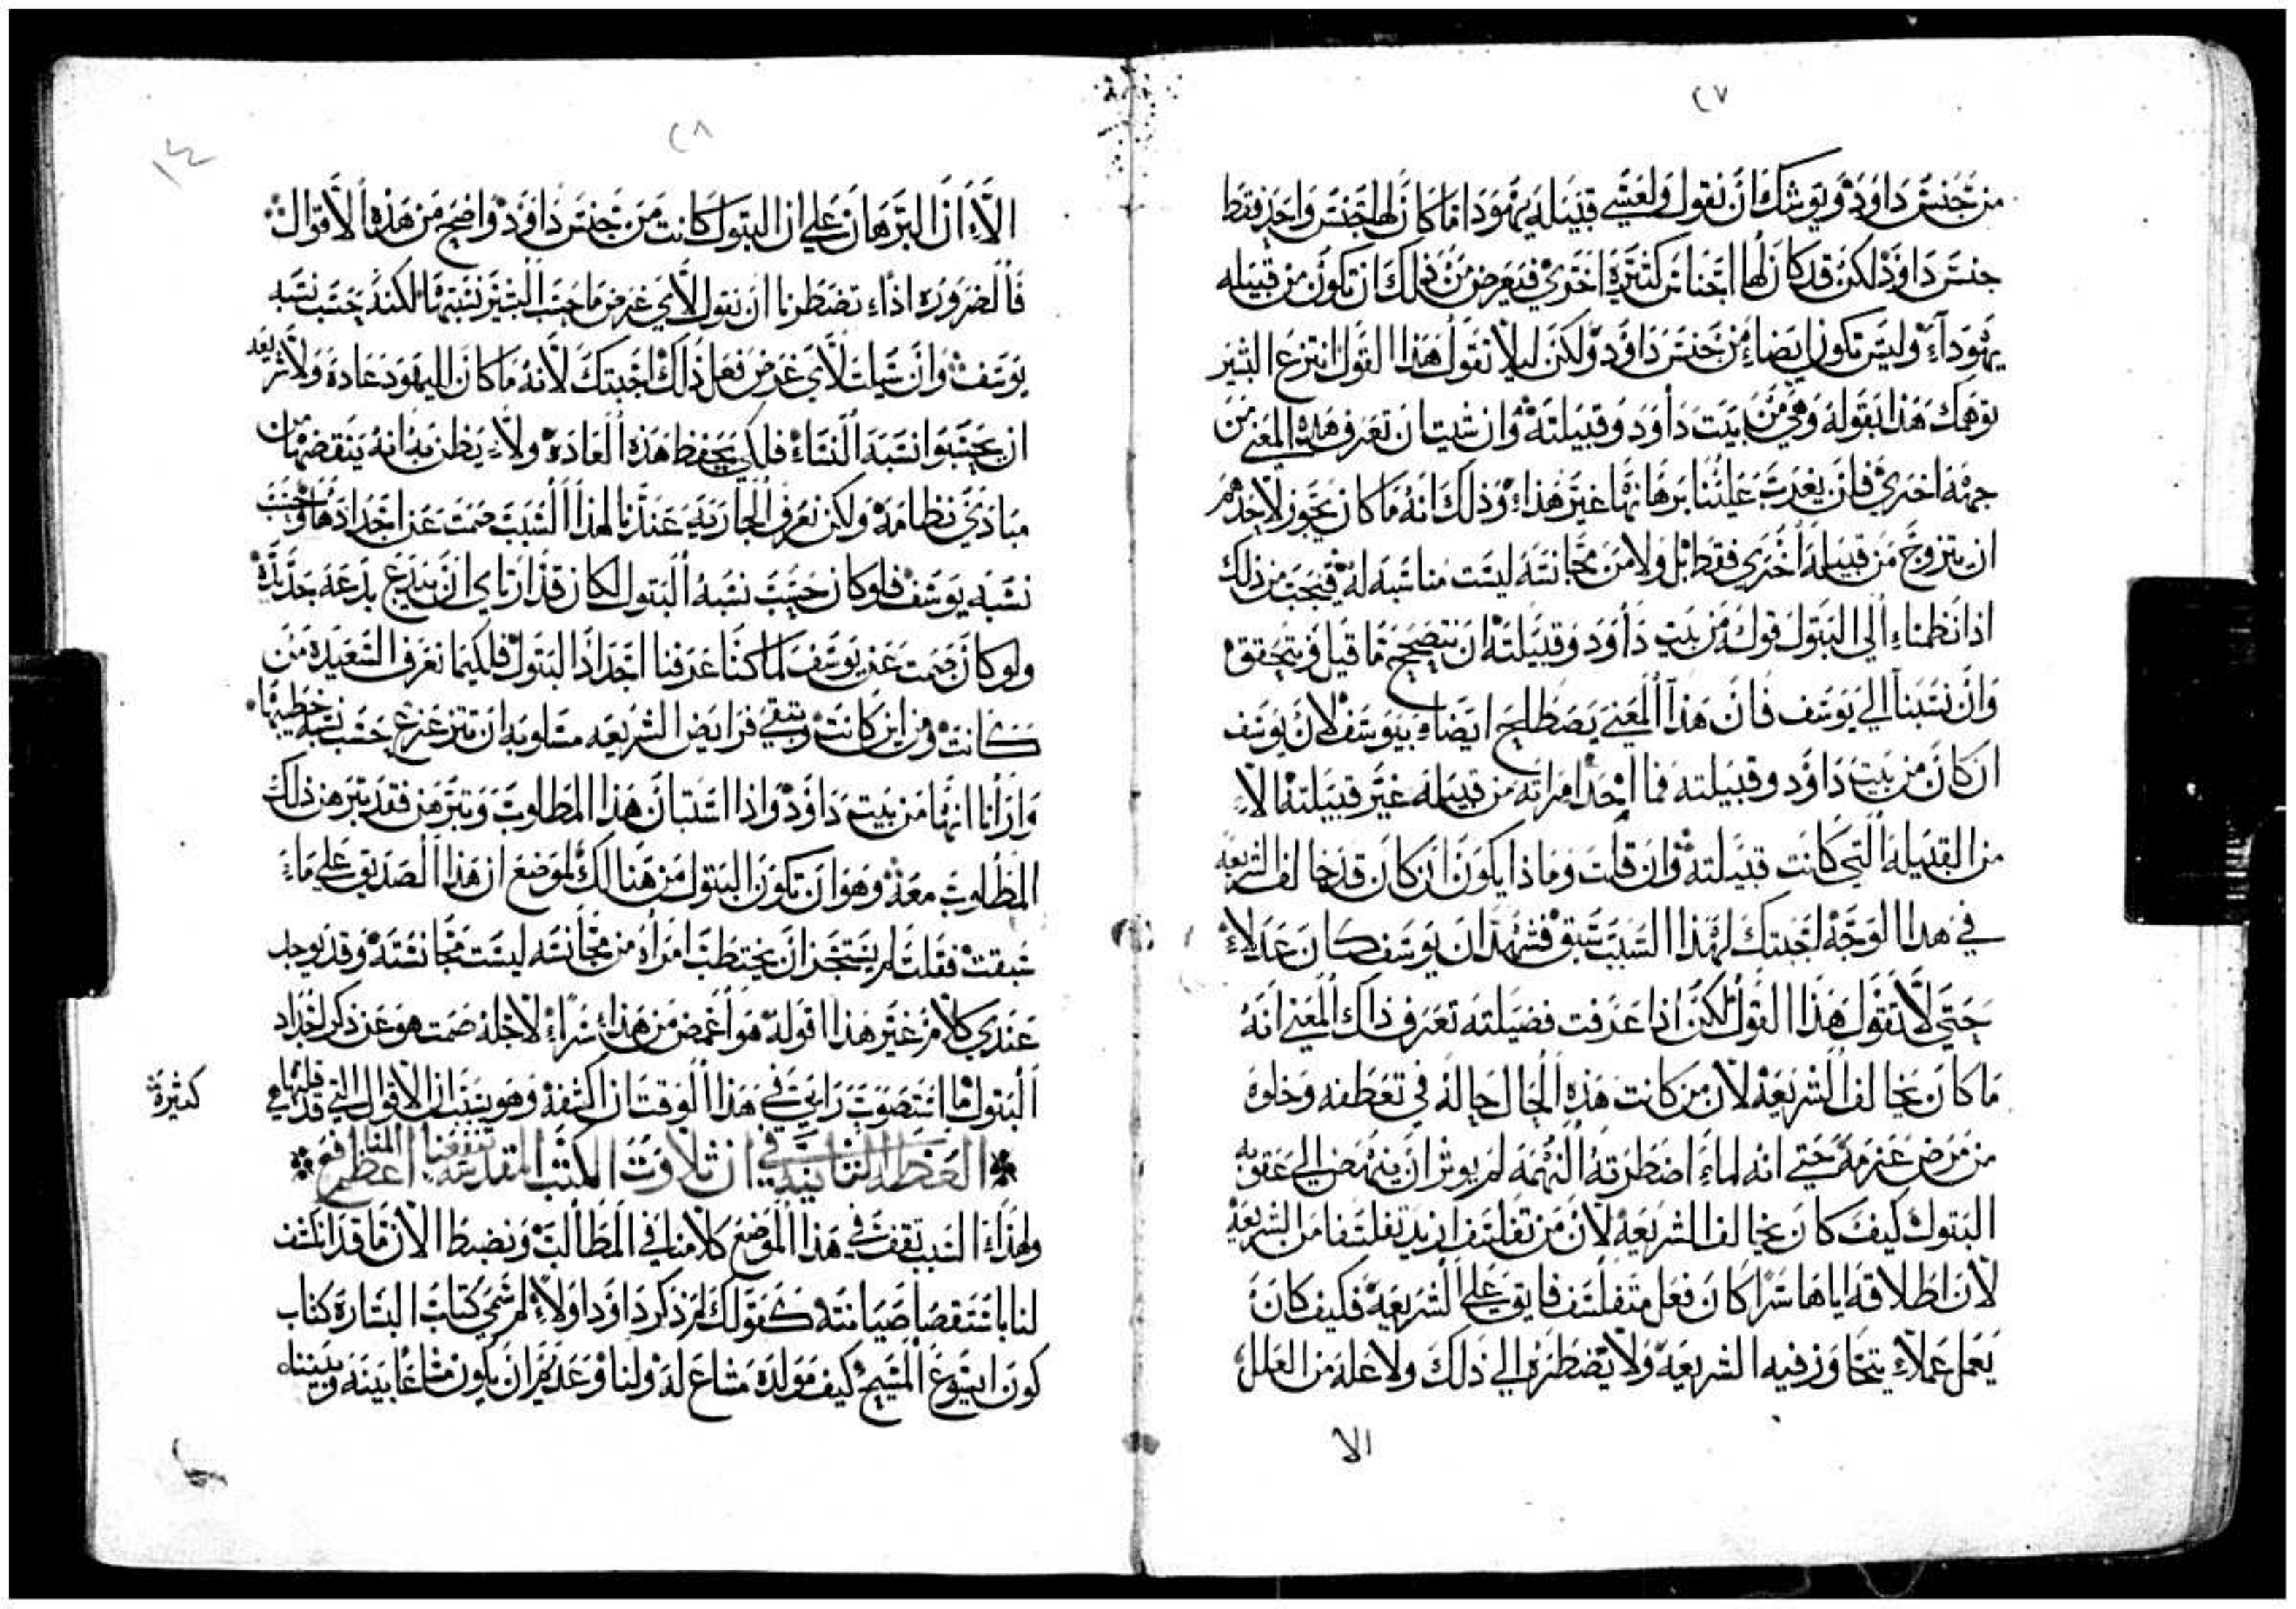 ٢٧
من جنس داوود ويوشك ان نقول ولعشي قبيله يهودا ما كان لها جنس واحد فقط
جنس داوود لكن قد كان لها اجناس كثيرة اخري فيعرض من ذلك ان تكون من قبيله
يهودآء وليس تكون ايضاء من جنس داوود ولكن ليلا نقول هذا القول انتزع البشير
توهمك هذا بقوله وهي من بيت داوود وقبيلته وان شيت ان تعرف هذا المعني من
جهة اخري فلن يغرب علينا برهانها غير هذاء وذلك انه ما كان يجوز لاحدهم
ان يتزوج من قبيلة اخري فقط بل ولا من مجانسة ليست مناسبه له فيجب من ذلك
اذا نظمناء الي البتول قوله من بيت داوود وقبيلته ان يتصحح ما قيل ويتحقق
وان نسبنا الي يوسف فان هذا المعني يصطلح ايضاء بيوسف لان يوسف
ان كان من بيت داوود وقبيلته فما اتخذ امراته من قبيلة غير قبيلته الاء
من القبيلة التي كانت قبيلته وان قلت وماذا يكون ان كان قد خالف الشريعه
في هذا الوجه اجبتك لهذا السبب سبق فشهد ان يوسف كان عدلاء
حتي لا تقول هذا القول لكن اذا عرفت فضيلته تعرف ذاك المعني انه
ما كان يخالف الشريعة لان من كانت هذه الحال حاله في تعطفه وخلوه
من مرض عزمه حتي انه لماء اضطرته التهمه لم يوثر ان ينهض الي عقوبه
البتول كيف كان يخالف الشريعة لان من تفلسف ازيد تفلسفا من الشريعة
لان اطلاقه اياها سرا كان فعل متفلسف فايق علي الشريعة فكيف كان
يعمل عملاء يتجاوز فيه الشريعة ولا يضطره الي ذلك ولا علة من العلل
الا
٢٨
١٤
الاء ان البرهان علي ان البتول كانت من جنس داوود واضح من هذه الاقوال
فالضروره اذاء تضطرنا ان نقول لاي غرض ما حسب البشير نسبتها لكنه حسب نسبه
يوسف وان سيلت لاي غرض فعل ذلك اجبتك لانه ما كان لليهود عادة ولا شريعه
ان يحسبوا نسبة النساء فلكي يحفظ هذه العادة ولاء يظن به انه ينقضها من
مبادي نظامه ولكن تعرف الجاريه عندنا لهذا السبب صمت عن اجدادها وحسب
نسبه يوسف فلو كان حسب نسبه البتول لكان قد ارتاي ان يبدع بدعة جديدة
ولو كان صمت عن يوسف لما كنا عرفنا اجداد البتول فلكيما نعرف السعيدة من
كانت ومن اين كانت وتبقي فرايض الشريعه مسلوبه ان تتزعزع حسب نسبة خطيبها
وارانا انها من بيت داوود واذا استبان هذا المطلوب وتبرهن فقد تبرهن ذلك
المطلوب معه وهو ان تكون البتول من هنالك لموضع ان هذا الصديق علي ماء
سبقت فقلت لم يستجز ان يختطب امراة من مجانسه ليست مجانسته وقد يوجد
عندي كلام غير هذا اقوله هو اغمض من هذاء سراء لاجله صمت هو عن ذكر اجداد
البتول ما استصوبت رايي في هذا الوقت ان اكشفه وهو بسبب ان الاقوال التي قد قلتها هي
كثيرة
العظه الثانيه في ان تلاوت الكتب المقدسة تنفعنا المنافع اعظم
ولهذاء السبب نقف في هذا الموضع كلامنا في المطالب ونضبط الان ما قد انكشف
لنا باستقصاء صيانته كقولك لم ذكر داوودا ولاء لم سمي كتاب البشارة كتاب
كون ايسوع المسيح كيف مولده مشاع له ولنا وعديم ان يكون مشاعا بينه وبيننا